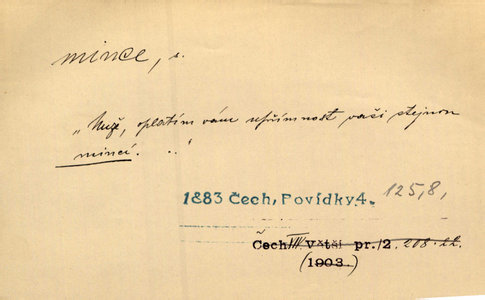 mince, s.
„Nuže, oplatím vám upřímnost vaši stejnou
mincí. . ."
1883 Čech, Povídky 4. 125,8,
Čech III Větší pr./2. 208
(1903.)